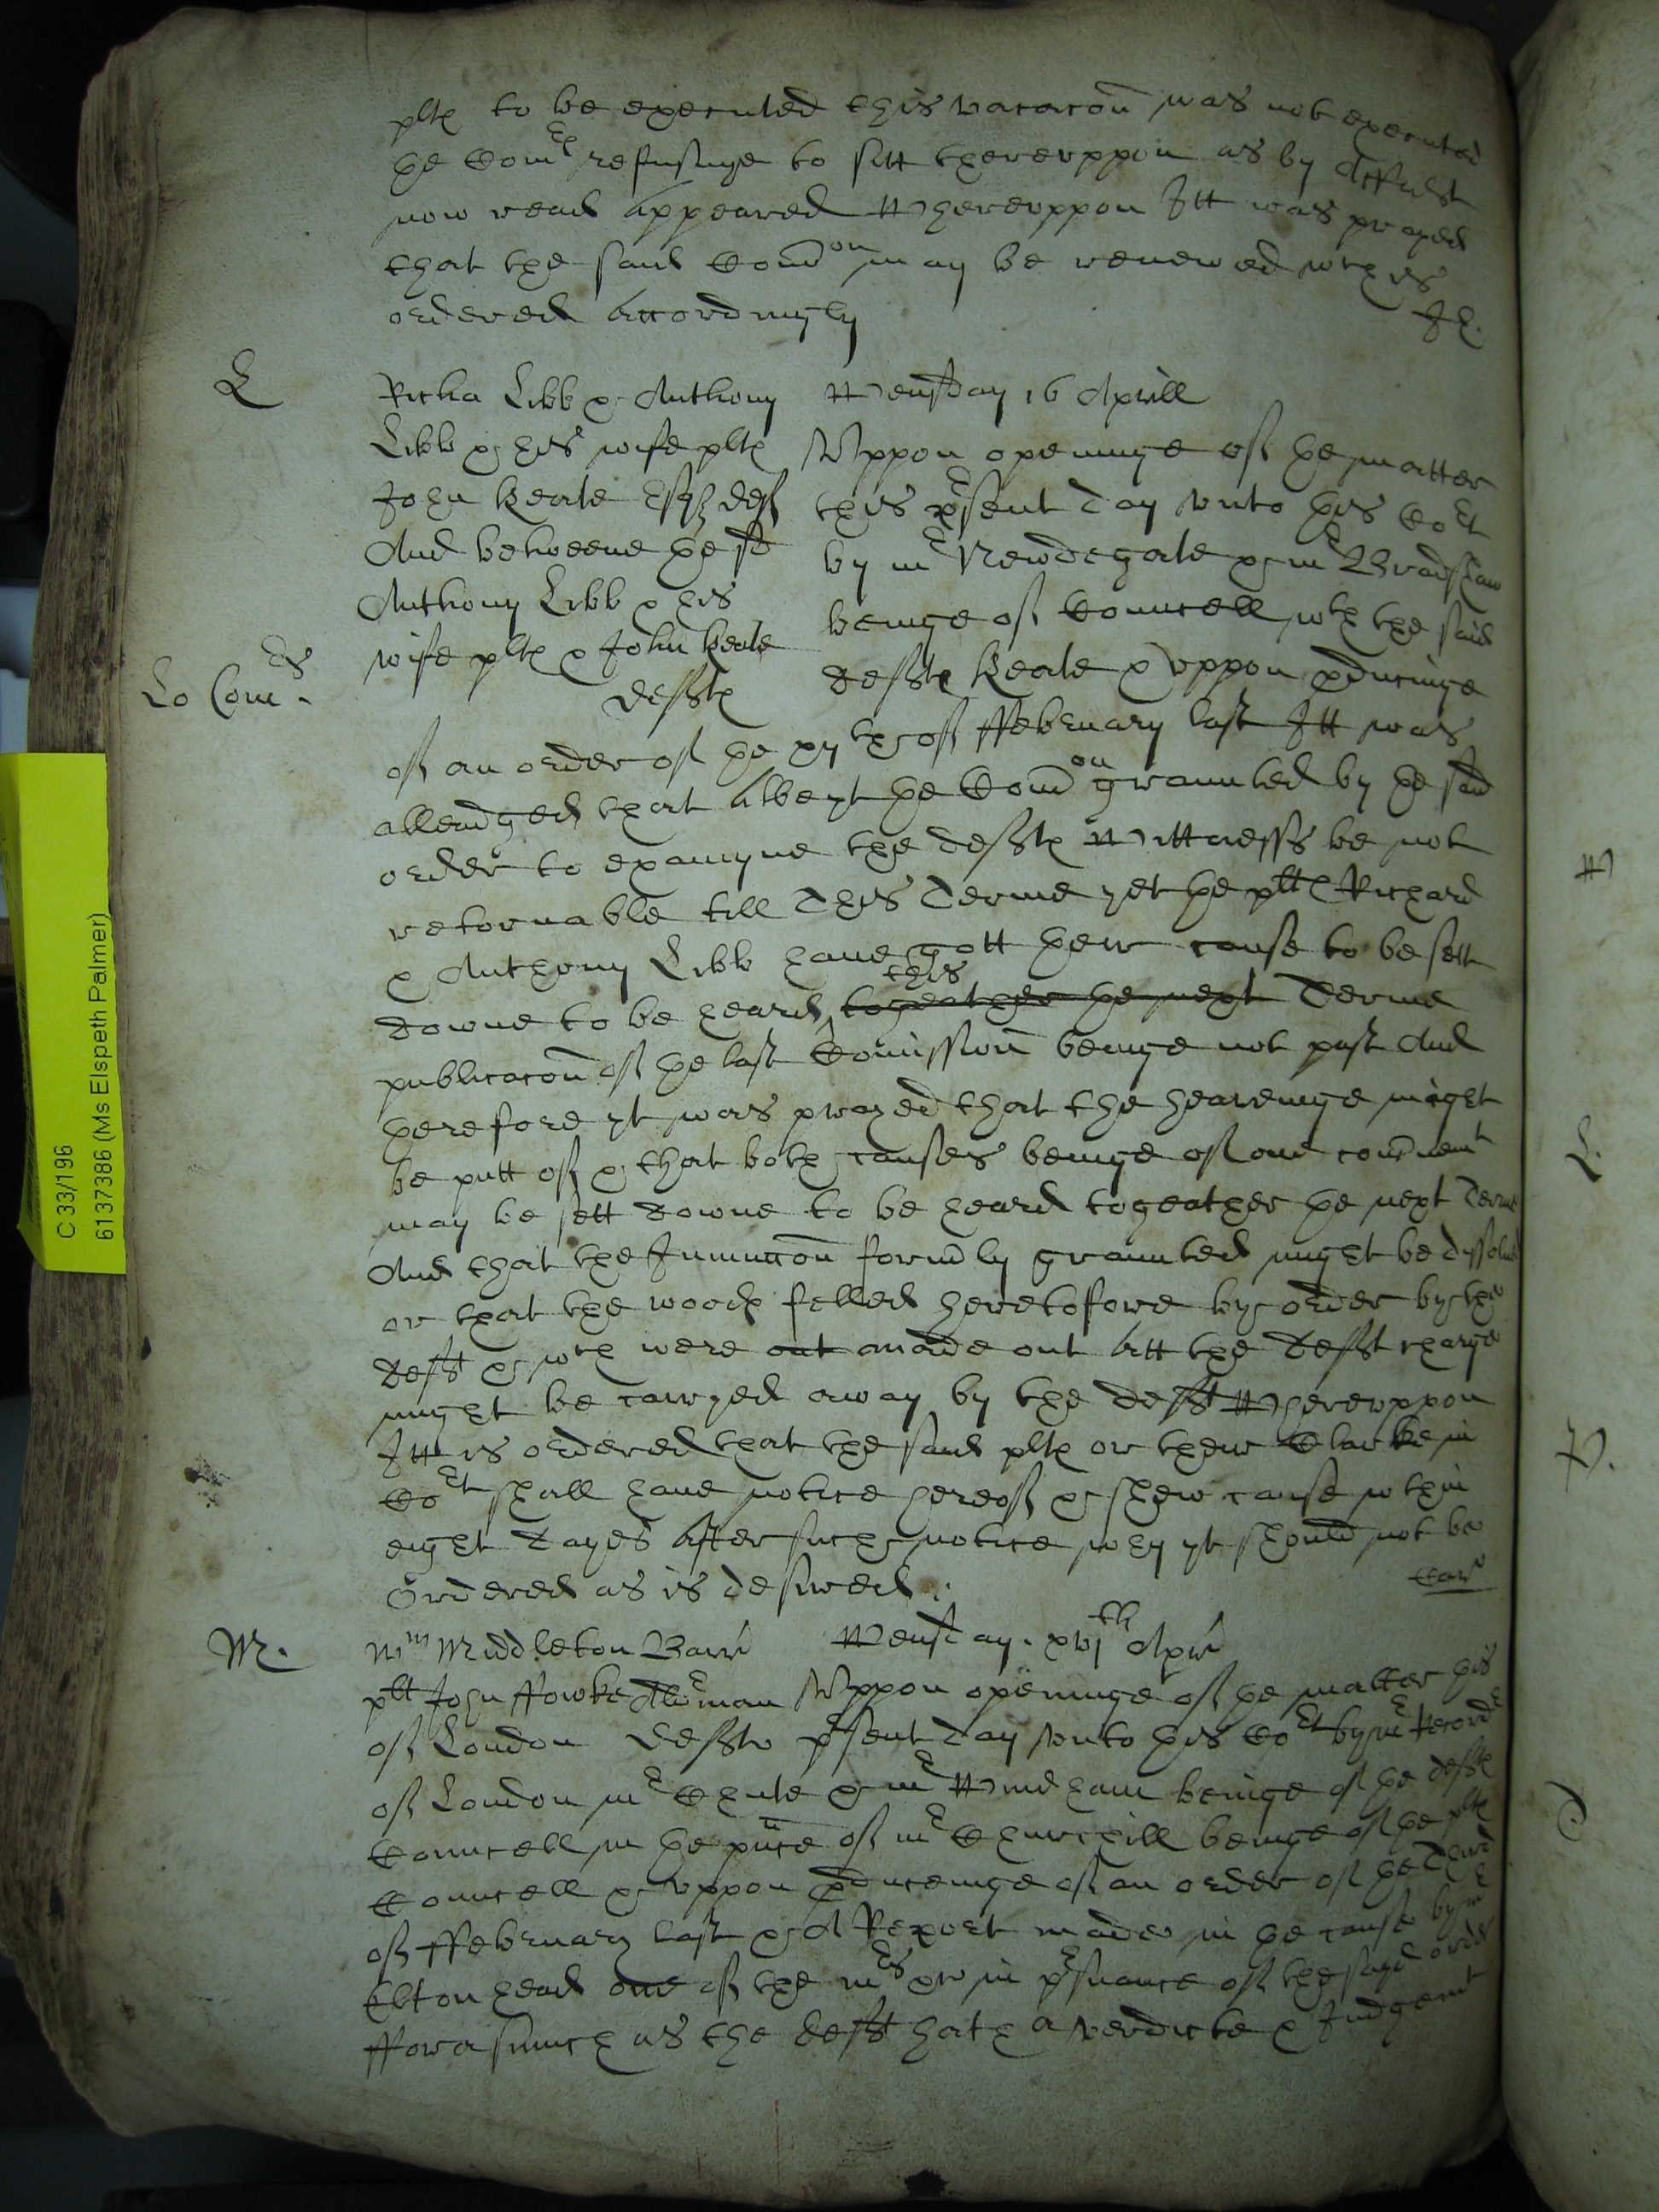 plts to be executed this vacacon was not executed
ye Com^rs refusinge to sitt thereuppon as by Affidt
now read appeared Whereuppon Itt was prayed
that the said Com^on may be renewed w^ch is
ordered accordingly
L
Richa Libb & Anthony
Libb & his wife plts
John Keale Esq deft
And betweene ye sd
Anthony Libb & his
wife plts & John Keale
Defts
Lo Com^rs
Wensday 16 Aprill
Uppon openinge of ye matter
this p^rsent day unto this Co^rt
by m^r Newdegate & m^r Bradshaw
beinge of Councell w^th the said
Defts Keale & uppon pducinge
of an order of ye xij th of ffebruary last Itt was
alleadged that albeyt ye Com^on graunted by ye said
order to examyne the Defts Wittnesss be not
retornable till this Terme yet ye plts Richard
& Anthony Libb have gott their cause to be sett
downe to be heard this togeather ye next Terme
publicacon of ye last Comission beinge not past And
therefore yt was prayed that the heareinge might
be putt of & that both causes beinge of one
may be sett downe to be heard togeather ye next Terme
And that the Iniunccon formly graunted might be dissolued
or that the woods felled heretofore by order by the
Deft & w^ch were out made out att the Defts charge
might be carryed away by the Deft Whereuppon
Itt is ordered that the said plts or their Clarke in
Co^rt shall have notice hereof & shew cause w^thin
eight dayes after such notice why yt should not be
Ordered as is desired
M.
W^m Middleton Barr
plt John ffowke Alderman
of London Defts
Wensday. xvj^th Apr
Uppon openinge of ye matter this
p^rsent day unto this Co^rt by m^r Record^r
of London m^r Chute & m^r Windham beinge of ye defts
Councell in ye pnce of m^r Churchill beinge of ye plts
Councell & uppon pduceinge of an order of ye Third
of ffebruary last & A Report made in ye cause by m^r
Eltonhead one of the m^rs &c in p^rsuance of the sayd order
fforasmuch as the Deft hath a verdicte & Judgem^t
C 33/196
6137386 (Ms Elspeth Palmer)
W
L.